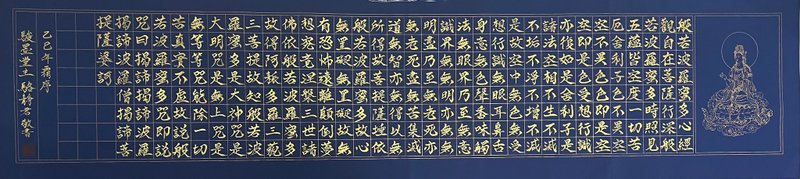 般若波羅蜜多心經
觀自在菩薩行深般
若波羅蜜多時照見
五蘊皆空度一切苦
厄舍利子色不異空
空不異色色即是空
空即是色受想行識
亦復如是舍利子是
諸法空相不生不滅
不垢不淨不增不減
是故空中無色無受
想行識無眼耳鼻舌
身意無色聲香味觸
法無眼界乃至無意
識界無無明亦無無
明盡乃至無老死亦
無老死盡無苦集滅
道無智亦無得以無
所得故菩提薩埵依
般若波羅蜜多故心
無罣礙無罣礙故無
有恐怖遠離顛倒夢
想究竟涅槃三世諸
佛依般若波羅蜜多
故得阿耨多羅三藐
三菩提故知般若波
羅蜜多是大神咒是
大明咒是無上咒是
無等等咒能除一切
苦真實不虛故說般
若波羅蜜多咒即說
咒曰揭諦揭諦波羅
揭諦波羅僧揭諦菩
提薩婆訶
乙巳年
駿墨堂主 駱 敬書